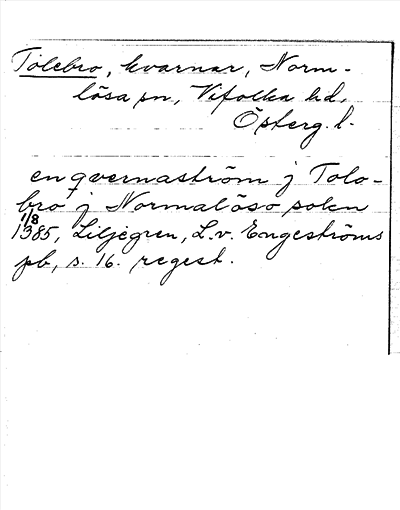 Tolebro, kvarnar, Norm-
lösa sn, Vifolka hd,
Österg. l.
en qvernaström j Tolo-
bro j Normalöso sokn
1/8
1385, Liljegren, L. v. Engeströms
pb, s. 16. regest.